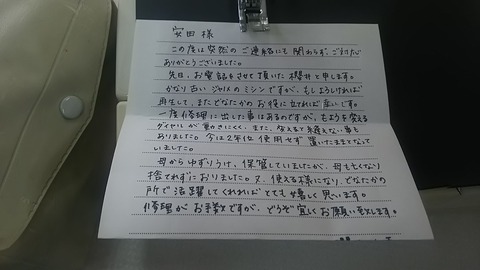 安田様
この度は突然のご連絡にも関わらず、ご対応
ありがとうございました。
先日、お電話をさせて頂いた櫻井と申します。
かなり古いジャノメのミシンですが、もしよろしければ
再生して、またどなたかのお役に立てれば嬉しいです。
一度修理に出した事はあるのですが、もようを変える
ダイヤルが動きにくく、また、変えると縫えない事も
ありました。今は2年位使用せず置いたままとなって
いました。
母からゆずりうけ、保管していましたが、母も亡くなり
捨てれずにおりました。又、使える様になり、どなたかの
所で活躍してくれればとても嬉しく思います。
修理がお手数ですが、どうぞ宜しくお願い致します。